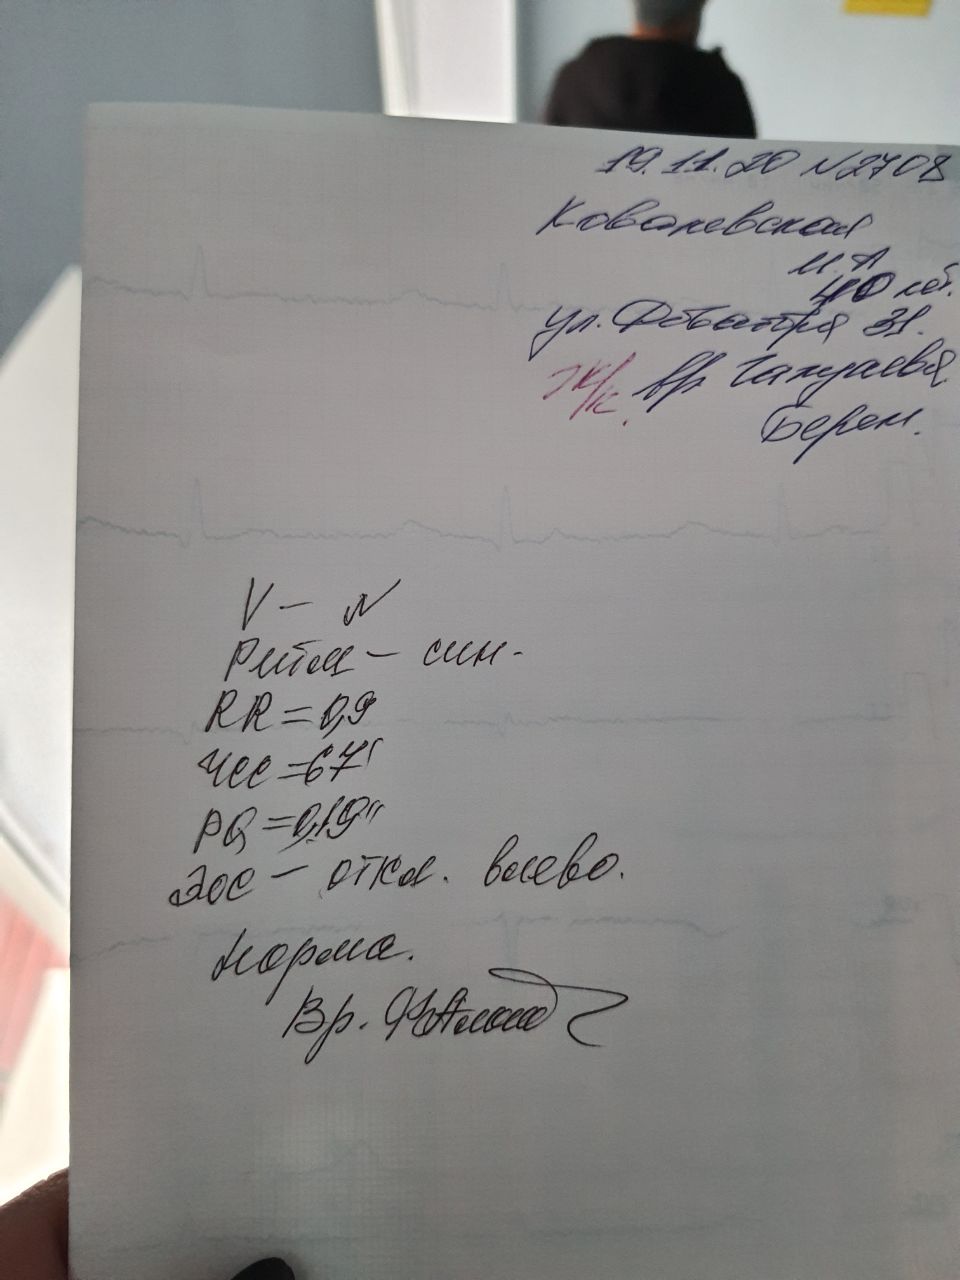 19.11.20 N2708
Ковалевская
И.А
40 лет.
ул. 31.
ж/к. вр
Берем.
V – N
Ритм – син.
RR = 0,9
ЧСС = 67'
PQ = 0,19"
ЭОС – откл. влево.
Норма.
Вр.